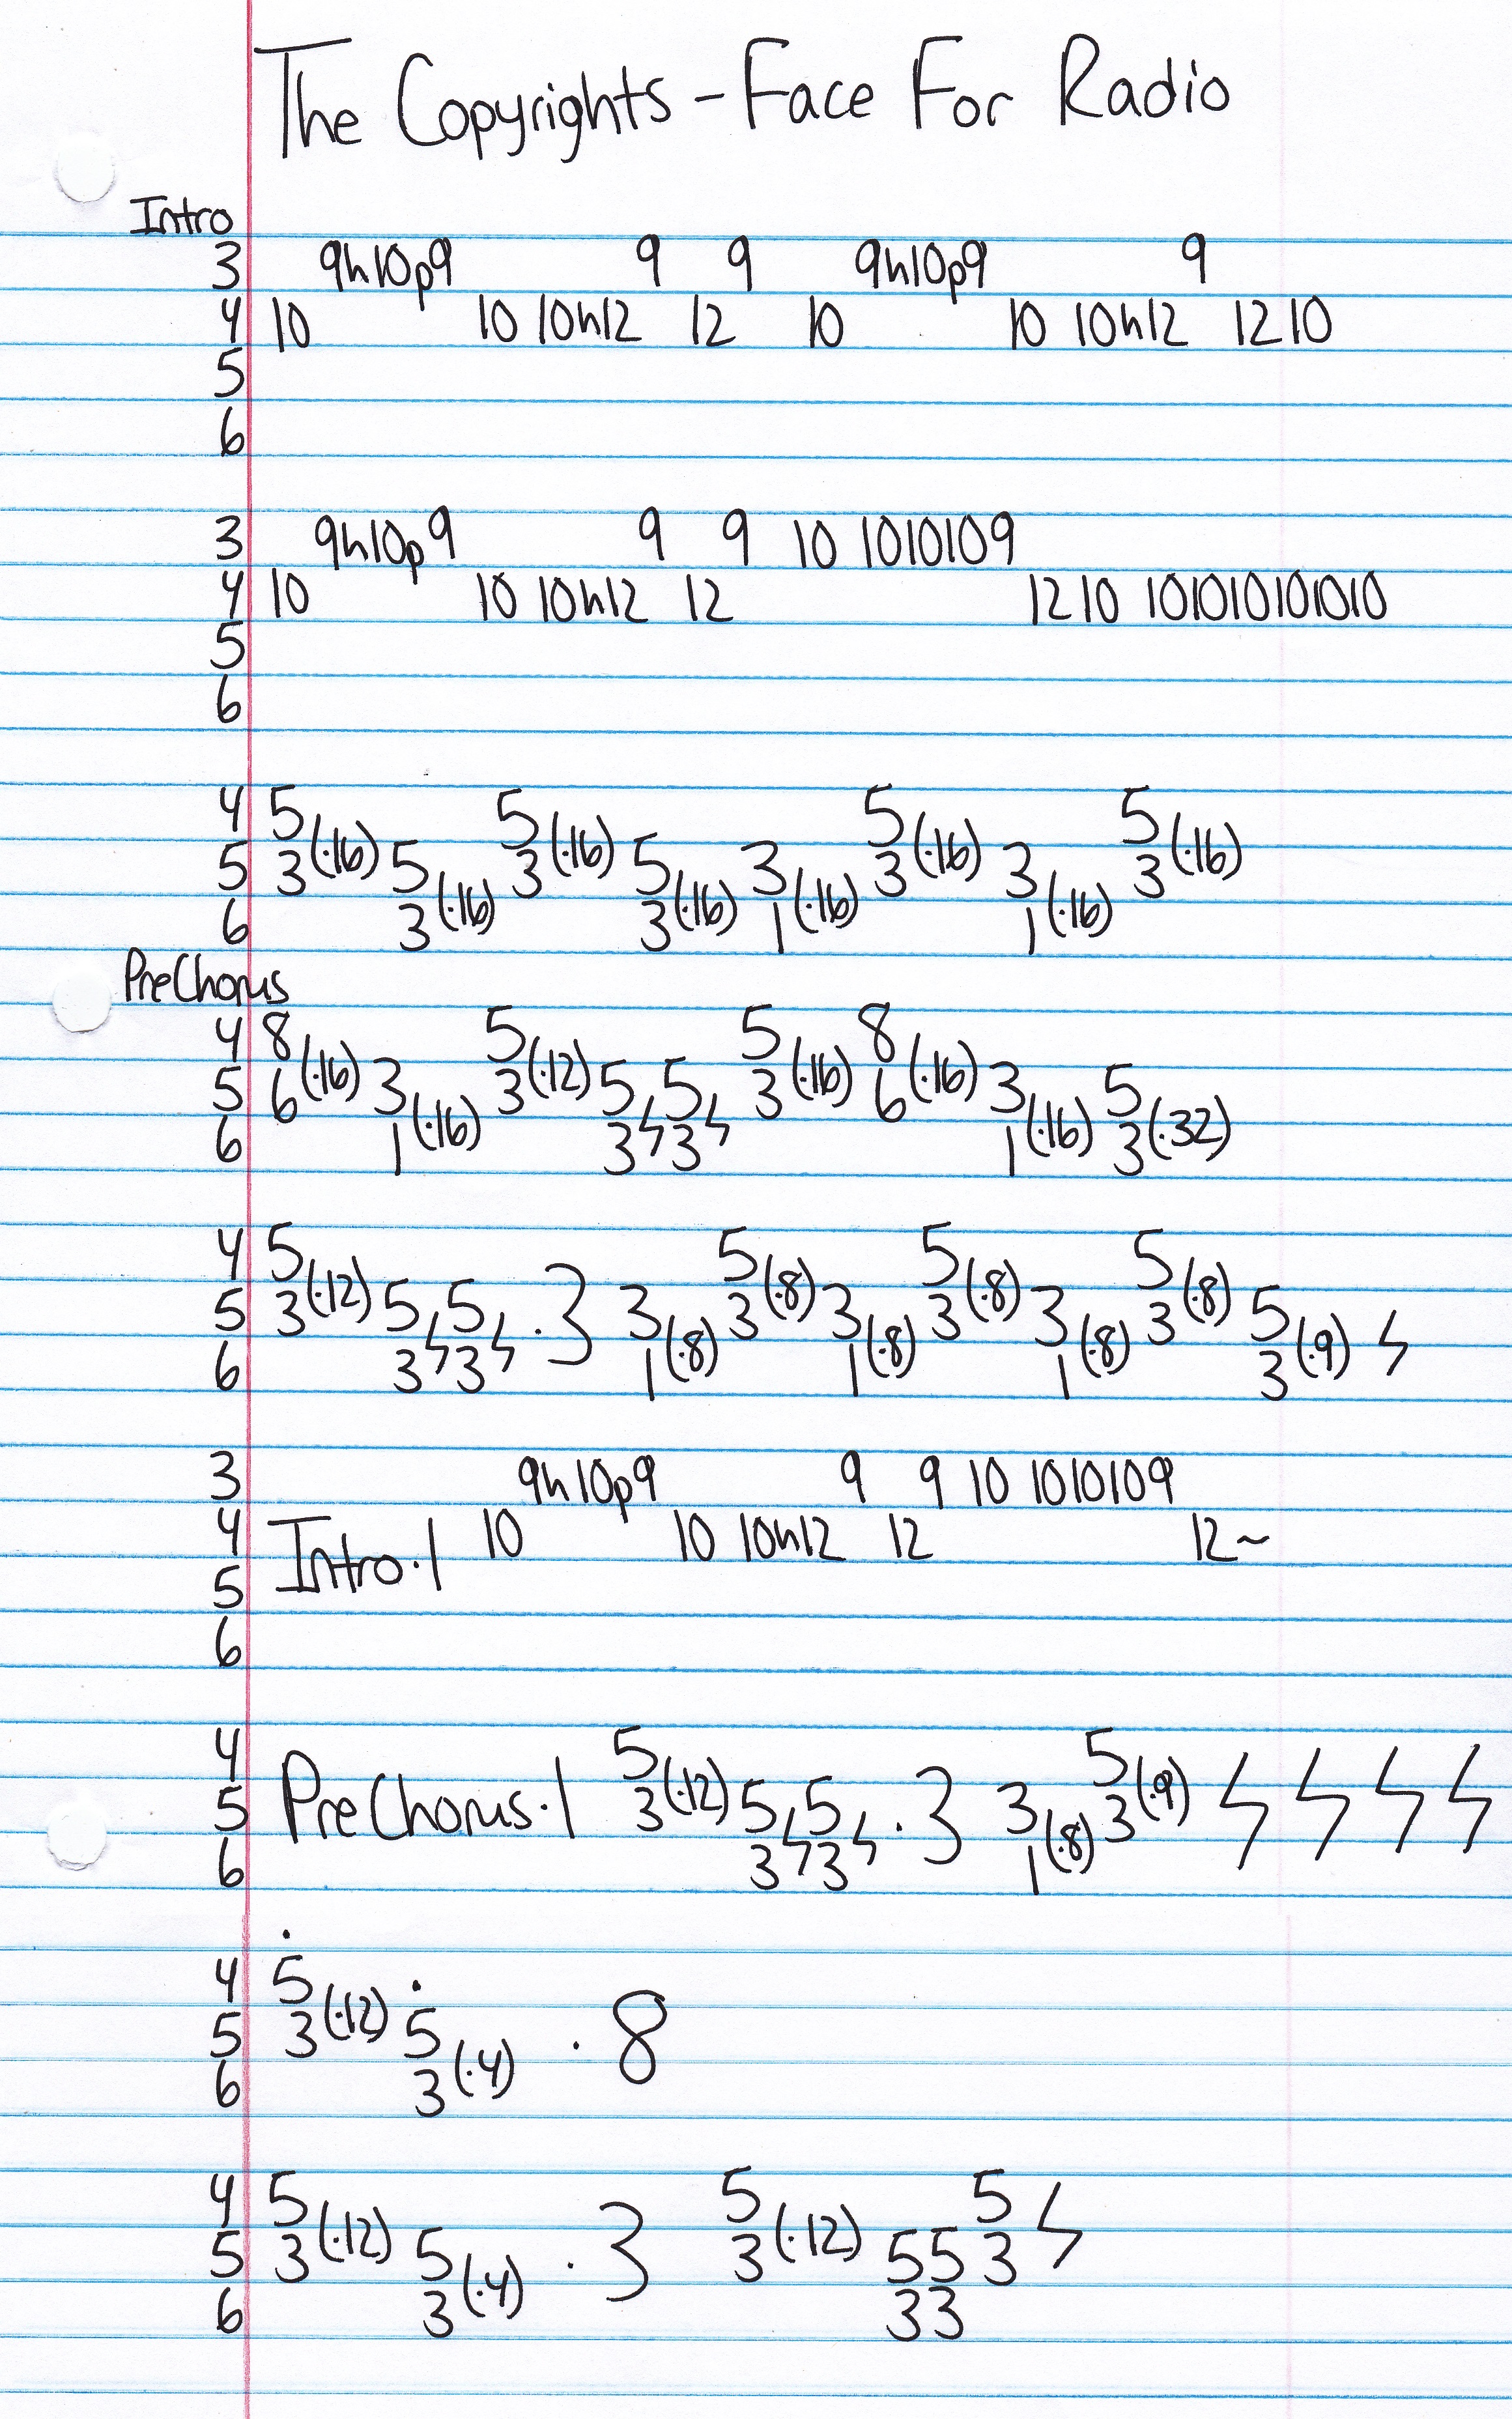 The Copyrights - Face For Radio
Intro
3 9h10p9 9 9 9h10p9 9
4 10 10 10h12 12 10 10 10h12 12 10
5
6
3 9h10p9 9 9 10 1010109
4 10 10 10h12 12 12 10 101010101010
5
6
4 5 5 5 5
5 3(·16) 5 3(·16) 5 3 3(·16) 3 3(·16)
6 3(·16) 3(·16) 1(·16) 1(·16)
PreChorus
4 8 5 5 8
5 6(·16) 3 3(·12) 5 5 3(·16) 6(·16) 3 5
6 1(·16) 3ϟ3ϟ 1(·16) 3(·32)
4 5 5 5 5
5 3(·12) 5 5 ·3 3 3(·8) 3 3(·8) 3 3(·8) 5
6 3ϟ3ϟ 1(·8) 1(·8) 1(·8) 3(·9) ϟ
3 9h10p9 9 9 10 1010109
4 Intro·1 10 10 10h12 12 12~
5
6
4 5 5
5 PreChorus·1 3(·12) 5 5 ·3 3 3(·9) ϟ ϟ ϟ ϟ
6 3ϟ3ϟ 1(·8)
4 5̇
5 3(·12) 5̇ ·8
6 3(·4)
4 5 5 5
5 3(·12) 5 ·3 3(·12) 55 3 ϟ
6 3(·4) 33